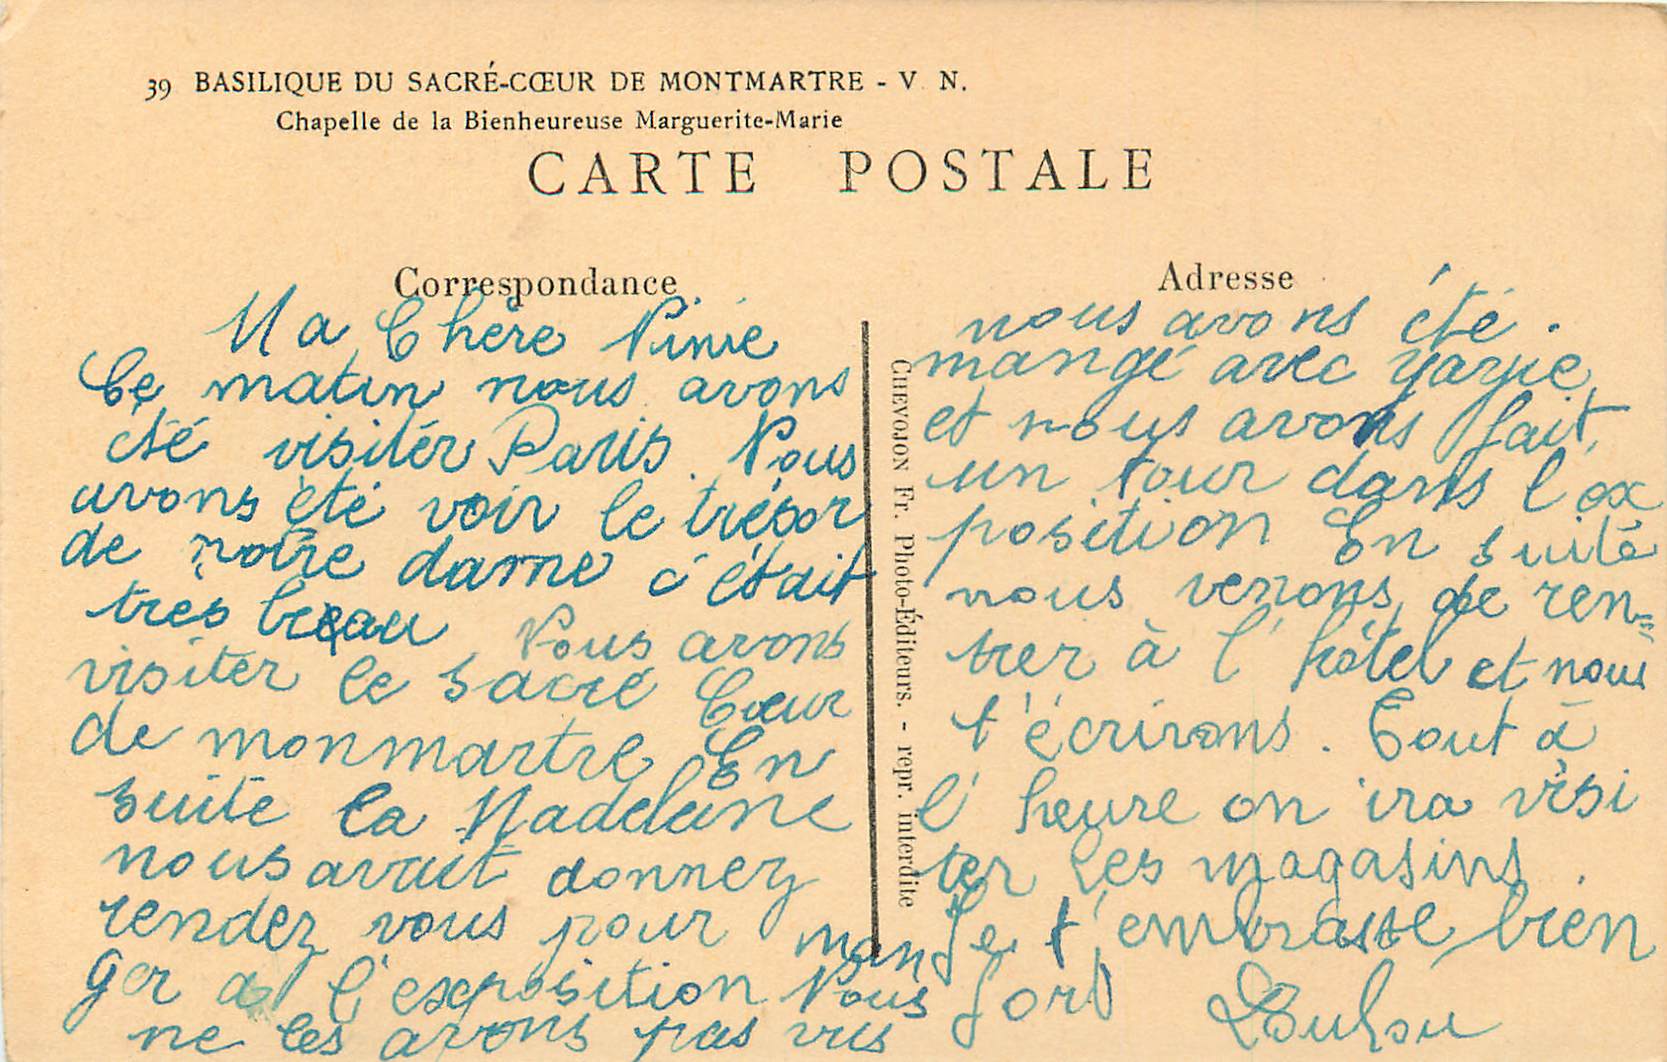 39 BASILIQUE DU SACRÉ-CŒUR DE MONTMARTRE - V. N.
Chapelle de la Bienheureuse Marguerite-Marie
CARTE POSTALE
Correspondance
Ma Chère Ninie
Ce matin nous avons
été visiter Paris. Nous
avons été voir le trésor
de notre dame c'était
très beau Nous avons
visiter le Sacré Cœur
de monmartre En
suite la Madeleine
nous avait donnez
rendez vous pour man
ger a l'exposition Nous
ne les avons pas vus
CHEVOJON Fr. Photo-Éditeurs. - repr. interdite
Adresse
nous avons été.
mangé avec
et nous avons fait
un tour dans l'ex
position En suite
nous venons de ren=
trer à l'hôtel et nous
t'écrirons. Tout à
l'heure on ira visi
ter les magasins.
Je t'embrasse bien
fort